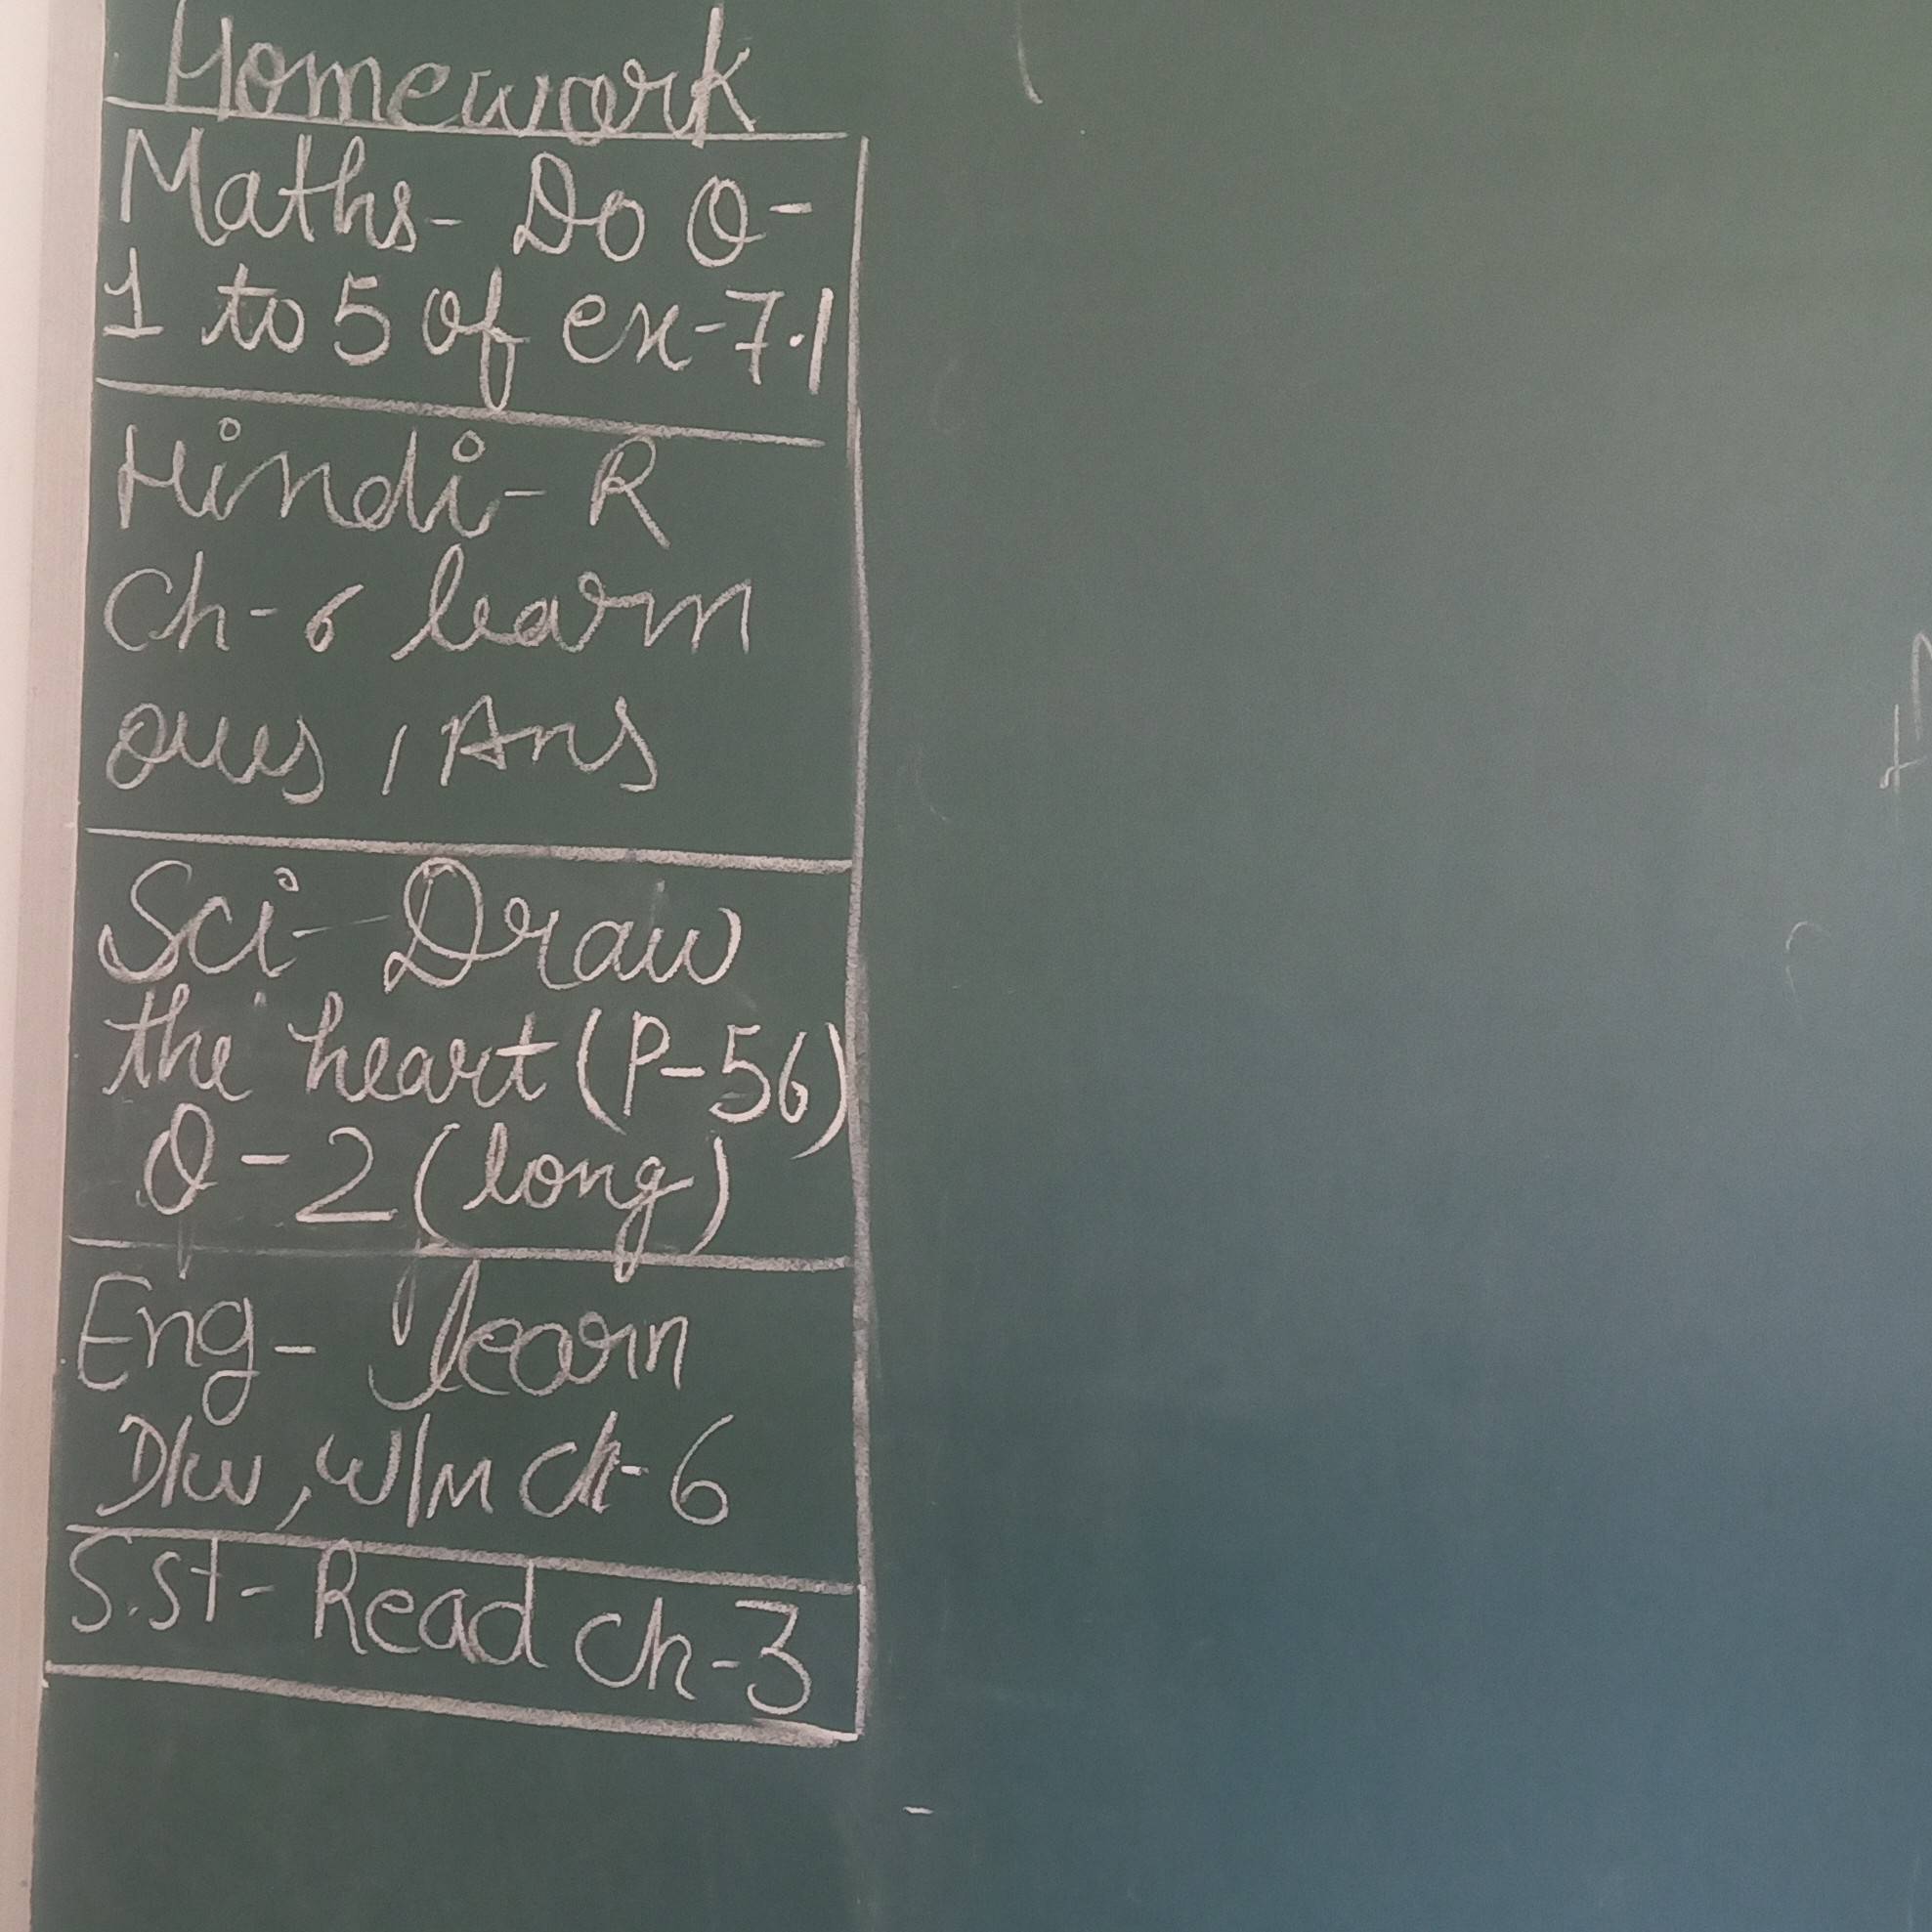 Homework
Maths- Do Q-
1 to 5 of ex-7.1
Hindi- R
Ch-6 learn
ques, Ans
Sci- Draw
the heart (P-56)
Q-2 (long)
Eng- learn
D/w, w/m ch-6
S.st- Read ch-3